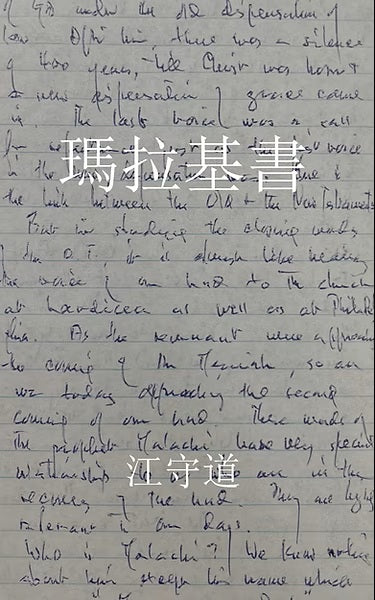 of God under the old dispensation of
law. After him, there was a silence
of 400 years, till Christ was born &
a new dispensation of grace came
in. The last voice was a call
for voice
瑪拉基書
in the
the link between the Old & the New Testaments
But in studying the closing words
of the O.T., it is always like hearing
the voice of our Lord to the church
at Laodicea as well as at Philadel
phia. As the remnant were approaching
the coming of the Messiah, so are
we today approaching the second
coming of our Lord. These words of
the prophet Malachi have very special
江守道
relationship to are in the
recovery of the Lord. They are highly
relevant in our days.
Who is Malachi? We know nothing
about him except his name which